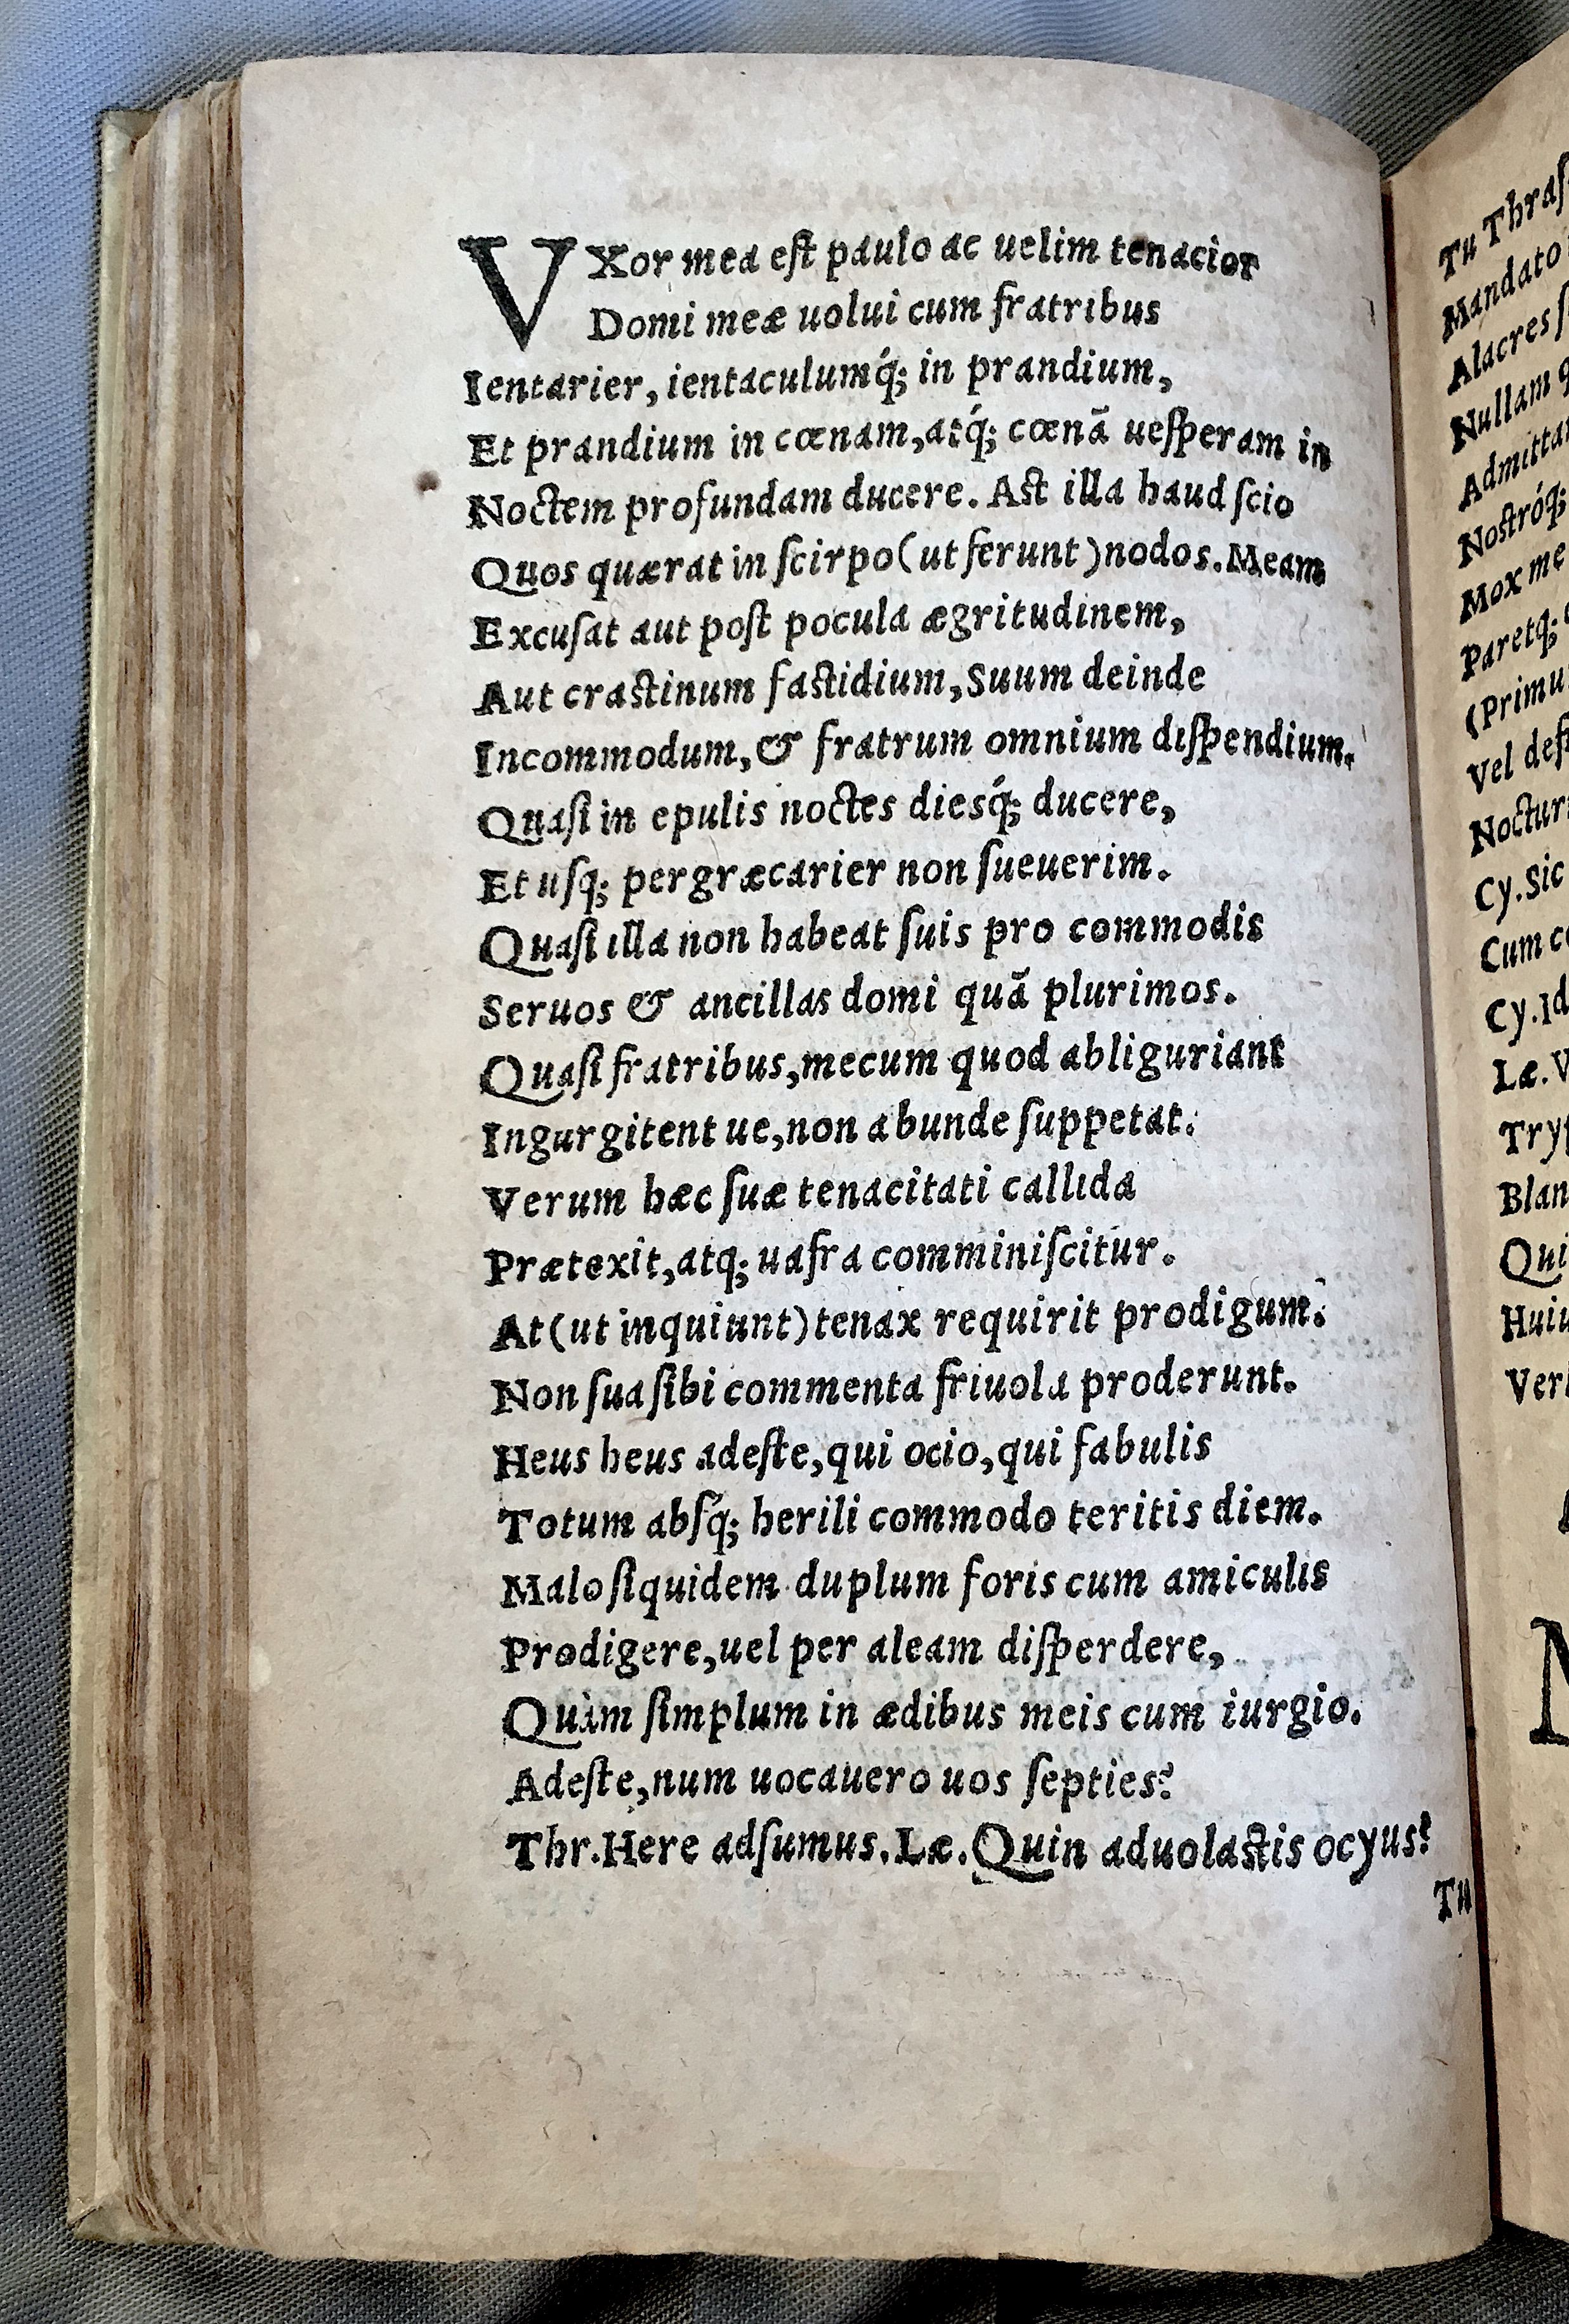 VXor mea est paulo ac uelim tenacior
Domi meæ uolui cum fratribus
Ientarier, ientaculumq́; in prandium,
Et prandium in cœnam, atq́; cœnã uesperam in
Noctem profundam ducere. Ast illa haud scio
Quos quærat in scirpo (ut ferunt) nodos. Meam
Excusat aut post pocula ægritudinem,
Aut crastinum fastidium, Suum deinde
Incommodum, & fratrum omnium dispendium.
Quasi in epulis noctes diesq́; ducere,
Et usq; pergræcarier non sueuerim.
Quasi illa non habeat suis pro commodis
Seruos & ancillas domi quã plurimos.
Quasi fratribus, mecum quod abliguriant
Ingurgitent ue, non abunde suppetat:
Verum hæc suæ tenacitati callida
Prætexit, atq; uafra comminiscitur.
At (ut inquiunt) tenax requirit prodigum:
Non sua sibi commenta friuola proderunt.
Heus heus adeste, qui ocio, qui fabulis
Totum absq́; herili commodo teritis diem.
Malo siquidem duplum foris cum amiculis
Prodigere, uel per aleam disperdere,
Quàm simplum in ædibus meis cum iurgio.
Adeste, num uocauero uos septies?
Thr. Here adsumus. Læ. Quin aduolastis ocyus?
Tu
Tu
Mandato
Alacres
Nullam
Nostróq;
Mox me
Paretq;
Vel
Cy. Sic
Cum
Cy. Id
Læ.